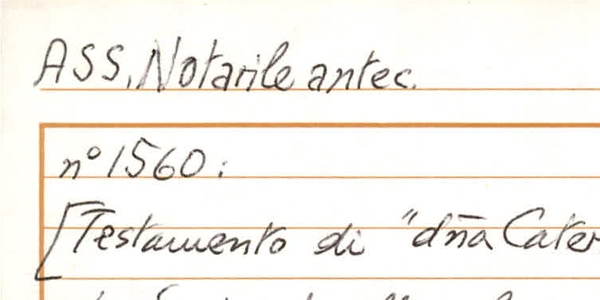 ASS, Notarile antec.
n° 1560:
[Testamento di "dña Cater